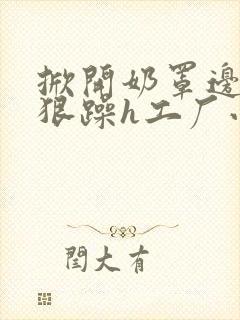 掀開奶罩邊
狠躁h工厂小
閆大有